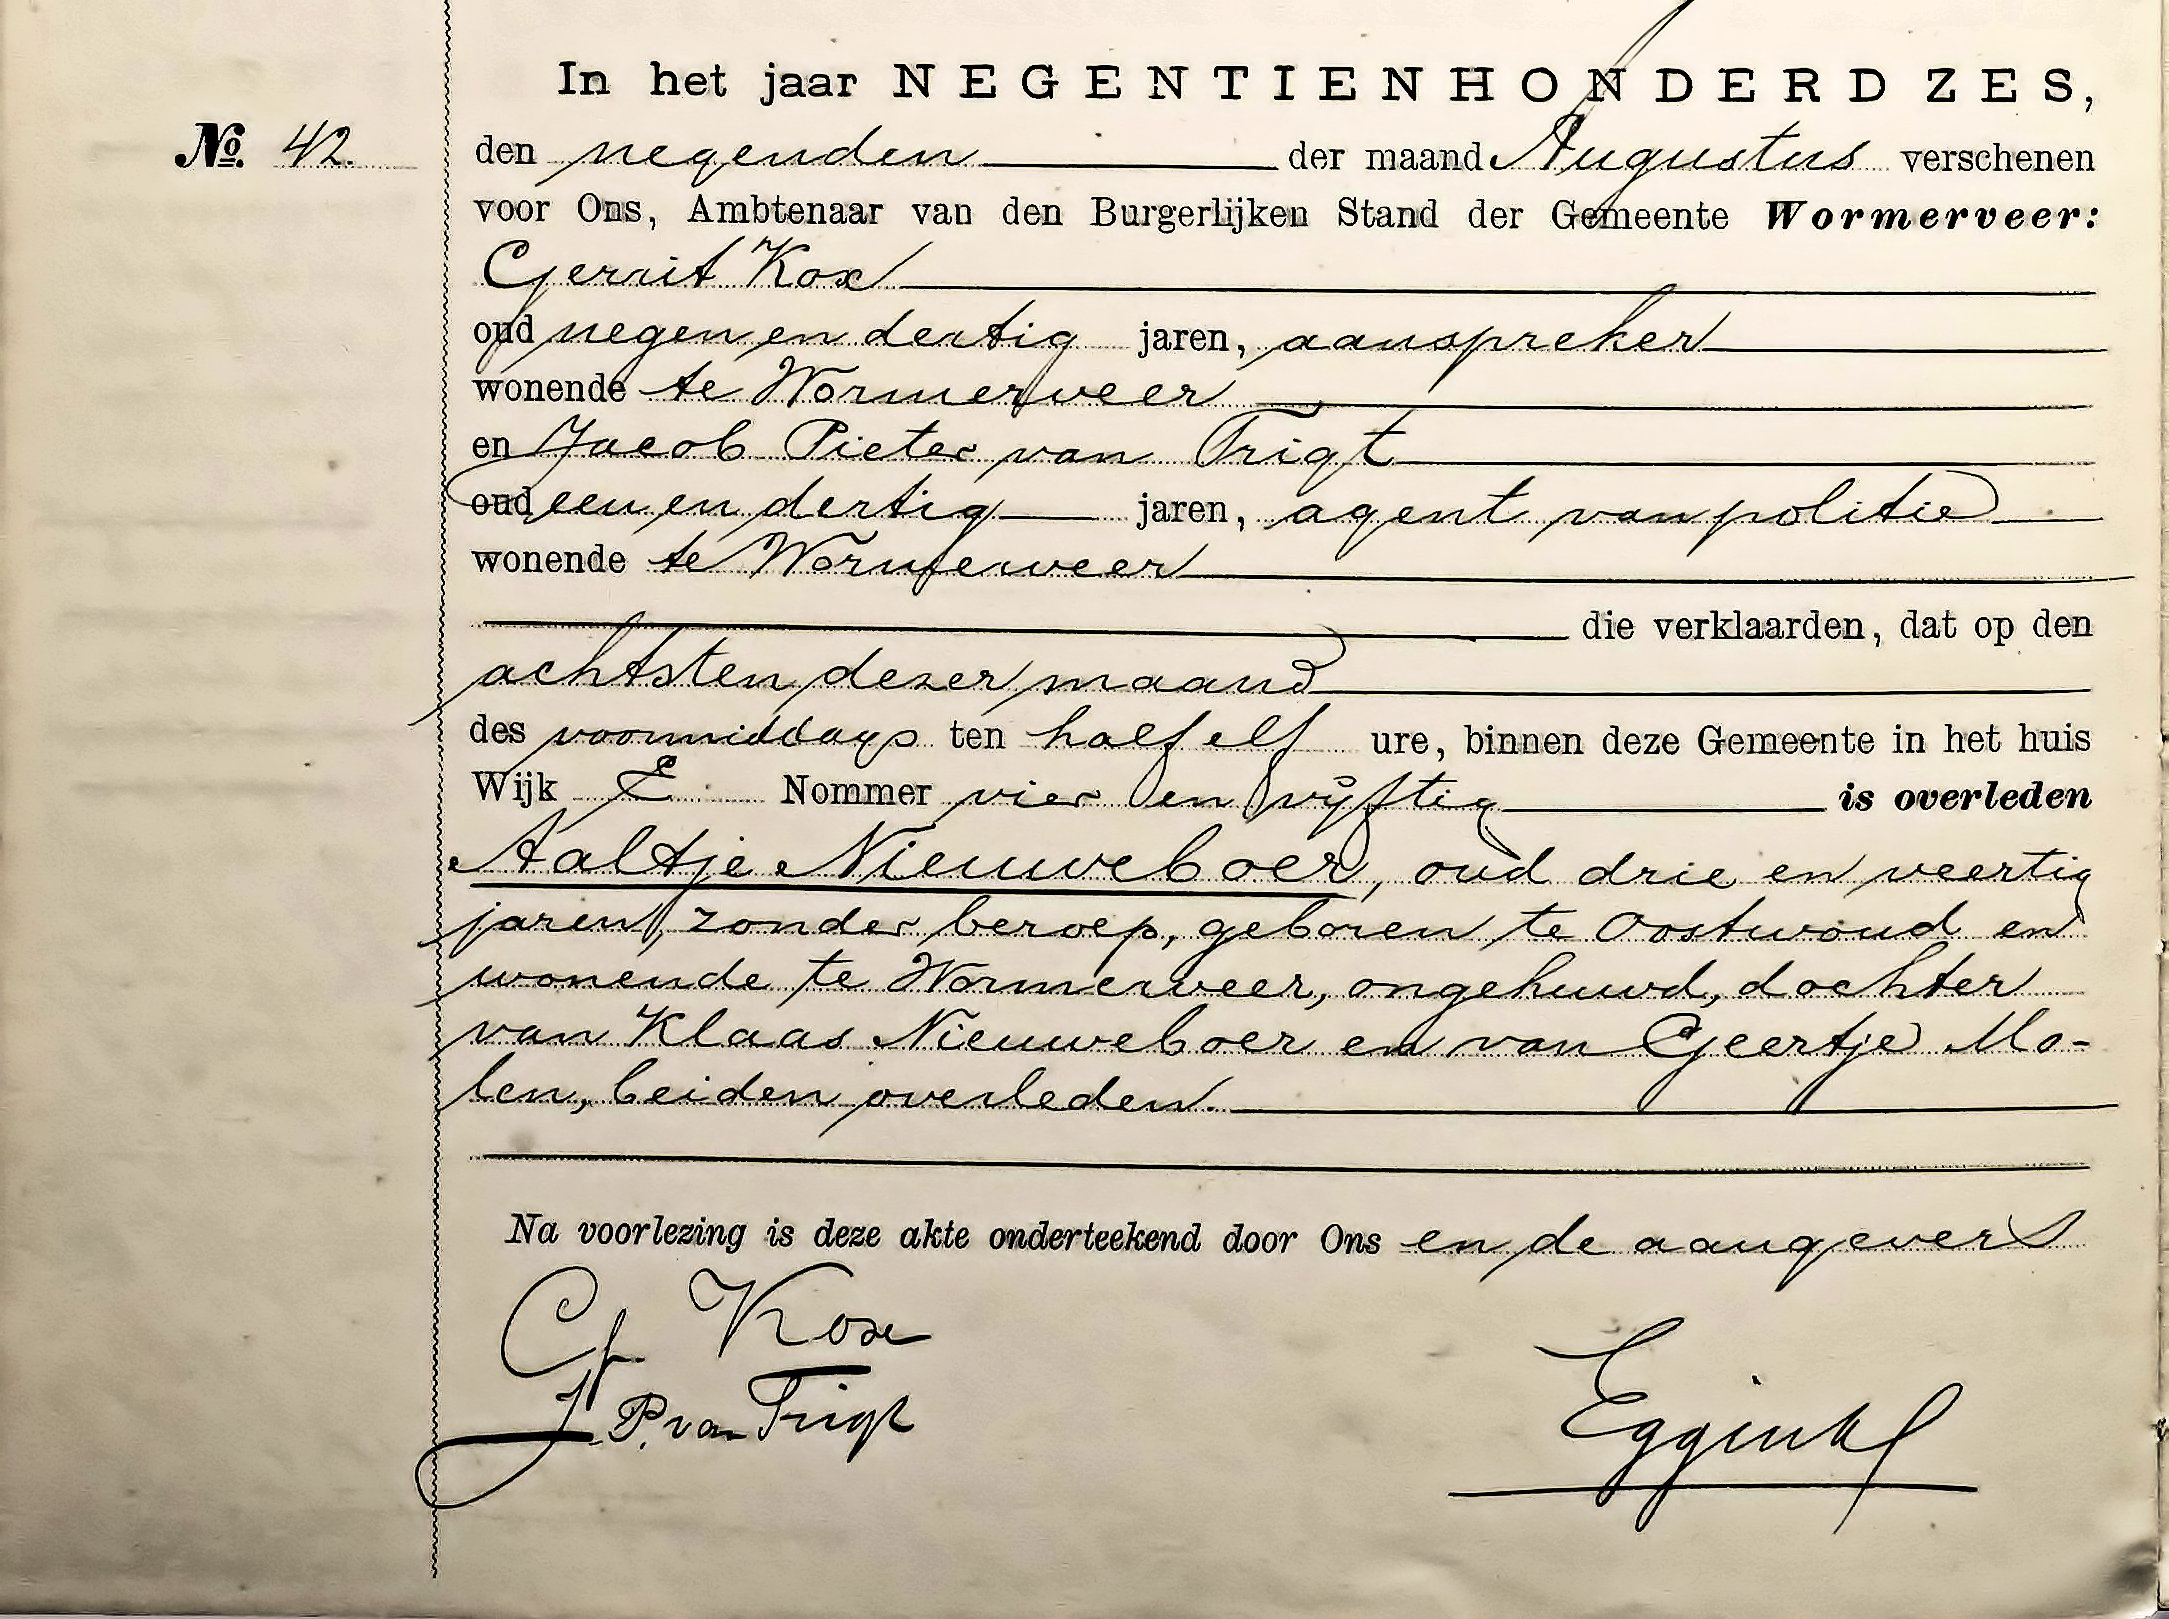 In het jaar NEGENTIENHONDERD ZES,
No. 42. den negenden der maand Augustus verschenen
voor Ons, Ambtenaar van den Burgerlijken Stand der Gemeente Wormerveer:
Gerrit Kox
oud negen en dertig jaren, aanspreker
wonende te Wormerveer
en Jacob Pieter van Trigt
oud een en dertig jaren, agent van politie
wonende te Wormerveer
die verklaarden, dat op den
achtsten dezer maand
des voormiddags ten half elf ure, binnen deze Gemeente in het huis
Wijk E Nommer vier en vijftig is overleden
Aaltje Nieuweboer, oud drie en veertig
jaren, zonder beroep, geboren te Oostwoud en
wonende te Wormerveer, ongehuwd, dochter
van Klaas Nieuweboer en van Geertje Mo-
len, beiden overleden.
Na voorlezing is deze akte onderteekend door Ons en de aangevers
G. Kox
J. P. van Trigt
Eggink